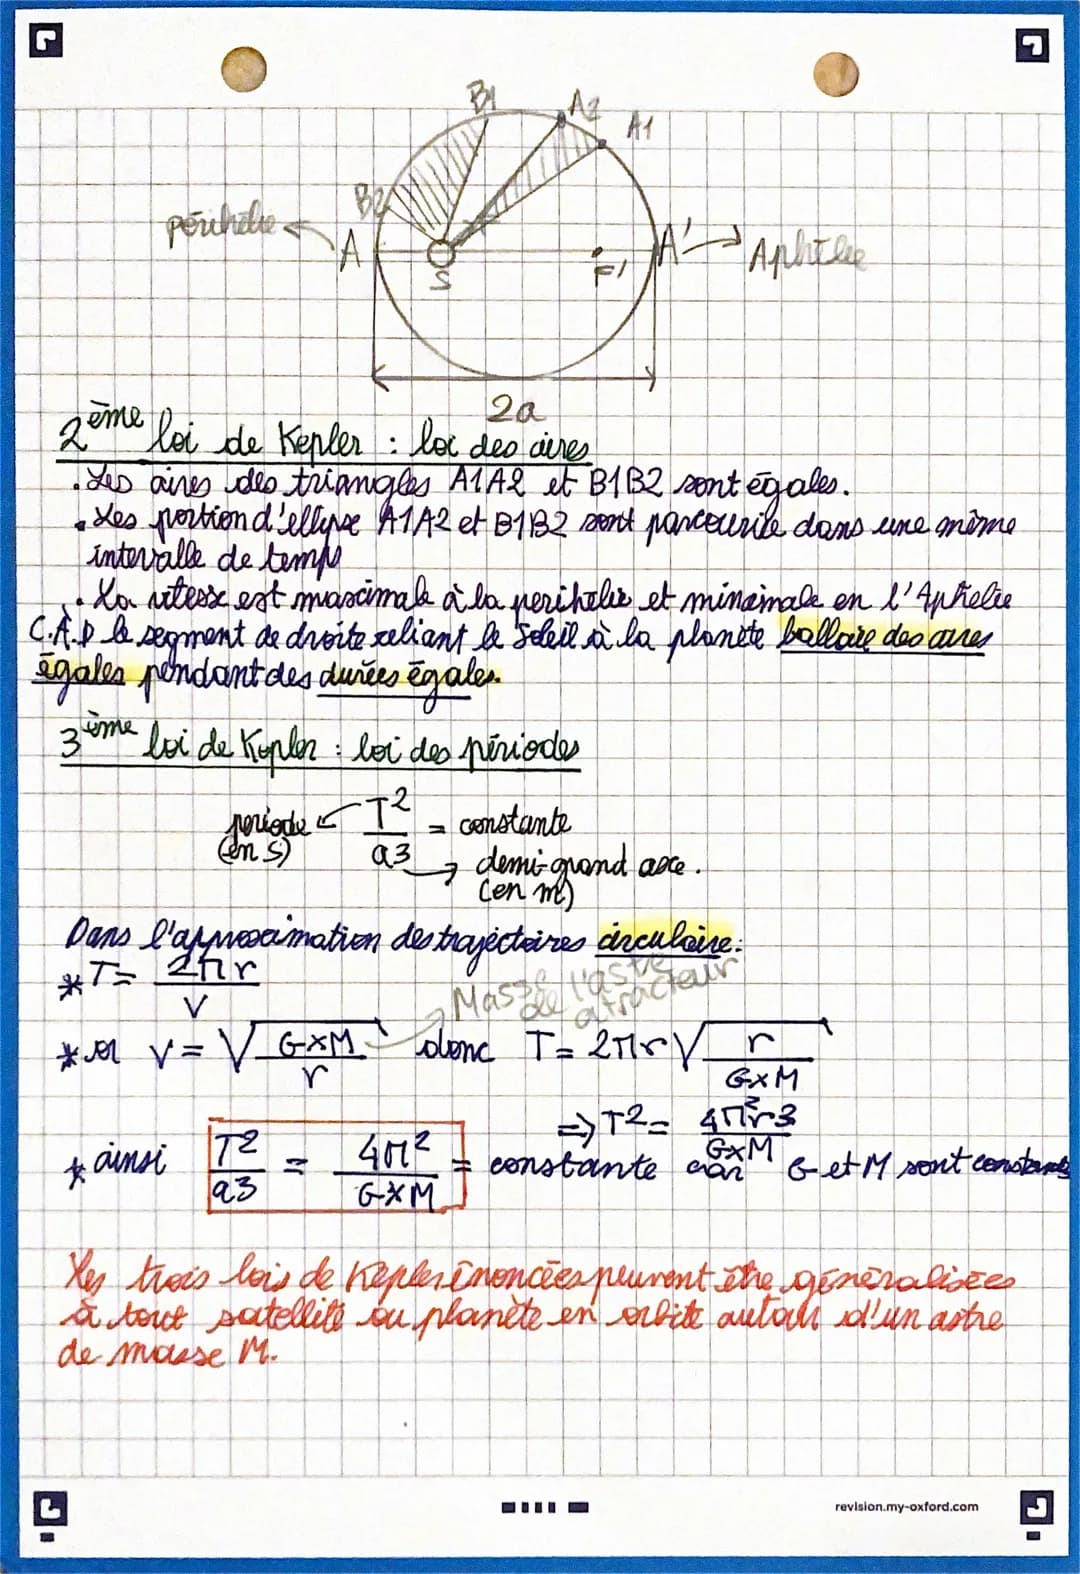 B1
A2
A1
B2
périhélie
A
S
F'
A'
Aphélie
2a
2ème loi de Kepler : loi des aires
. Les aires des triangles A1A2 et B1B2 sont égales.
. Les portion d'ellipse A1A2 et B1B2 sont parcourue dans une même
intervalle de temps
. La vitesse est maximale à la perihelie et minimale en l'Aphelie
C.A.D le segment de droite reliant le Soleil à la planète ballaie des aires
égales pendant des durées égales.
3ème loi de Kepler : loi des périodes
periode (en s) T²/a3 = constante
demi-grand axe.
(en m)
Dans l'approximation des trajectoires circulaire :
* T = 2πr/V
Masse de l'astre attracteur
* or V = √(G×M/r) donc T = 2πr√(r/G×M)
=> T² = 4π²r3/G×M
* ainsi T²/a3 = 4π²/G×M = constante car G et M sont constants
Les trois lois de Kepler énoncées peuvent être généralisées
à tout satellite ou planète en orbite autour d'un astre
de masse M.
revision.my-oxford.com